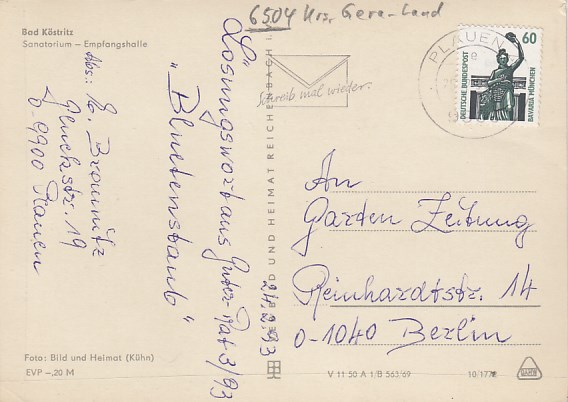 6504 Krs. Gera-Land
Bad Köstritz
Sanatorium — Empfangshalle
Abs.: E. Brounitz
Gluckstr. 19
O-9900 Plauen
"Losungswort aus Guter Rat 3/93
"Bluetenstaub"
24.2.93
Schreib mal wieder.
PLAUEN
60
DEUTSCHE BUNDESPOST
BAVARIA MÜNCHEN
An
Garten Zeitung
Reinhardtstr. 14
O-1040 Berlin
BILD UND HEIMAT REICHENBACH i.
Foto: Bild und Heimat (Kühn)
EVP —,20 M
V 11 50 A 1/B 563/69
10/177